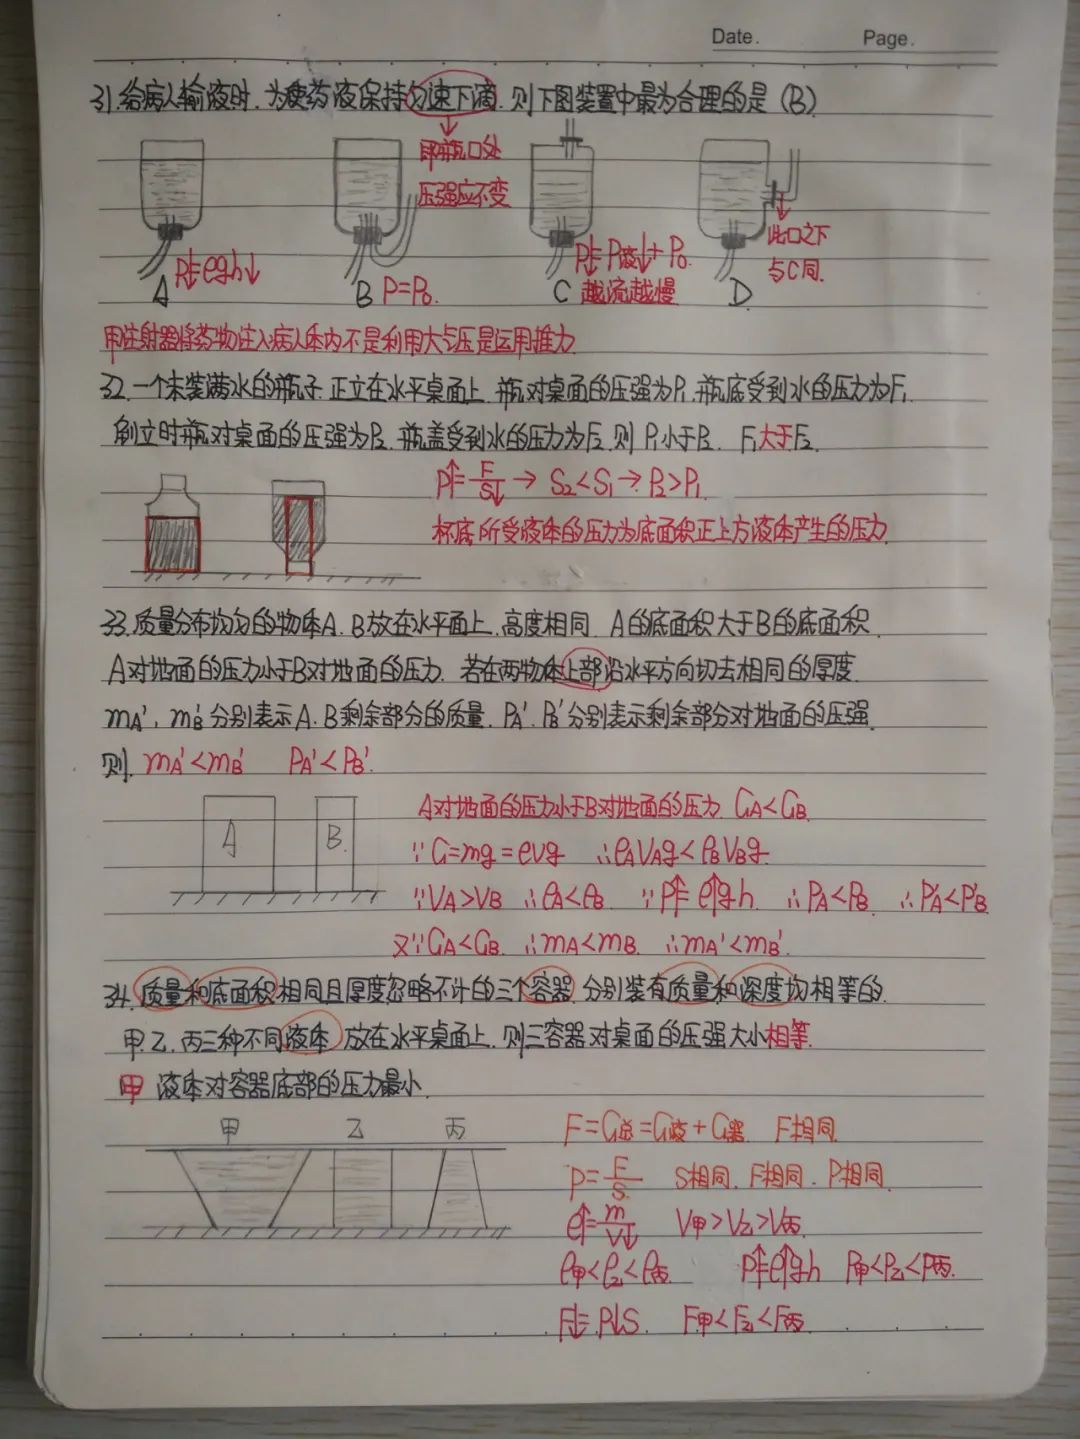 Date. Page.
31.给病人输液时.为使药液保持匀速下滴.则下图装置中最为合理的是(B)
即瓶口处
压强应不变
此口之下
与C同.
P↓=ρgh↓
P=P₀.
P↓=P液↓+P₀.
越流越慢
A B C D
甲注射器将药物注入病人体内不是利用大气压是运用推力.
32.一个未装满水的瓶子.正立在水平桌面上.瓶对桌面的压强为P₁.瓶底受到水的压力为F₁.
倒立时瓶对桌面的压强为P₂.瓶盖受到水的压力为F₂.则P₁小于P₂. F₁大于F₂.
P↑=F/S↓→S₂<S₁→P₂>P₁.
杯底所受液体的压力为底面积正上方液体产生的压力.
33.质量分布均匀的物体A.B放在水平面上.高度相同.A的底面积大于B的底面积.
A对地面的压力小于B对地面的压力.若在两物体上部沿水平方向切去相同的厚度.
mA′,mB′分别表示A.B剩余部分的质量.PA′.PB′分别表示剩余部分对地面的压强.
则.mA′<mB′ PA′<PB′.
A B
A对地面的压力小于B对地面的压力.GA<GB.
∵G=mg=ρvg ∴ρAVAg<ρBVBg.
∵VA>VB ∴ρA<ρB ∵P↑=ρ↑gh. ∴PA<PB. ∴P′A<P′B.
又∵GA<GB.∴mA<mB.∴mA′<mB′.
34.质量和底面积相同且厚度忽略不计的三个容器.分别装有质量和深度均相等的.
甲.乙.丙三种不同液体.放在水平桌面上.则三容器对桌面的压强大小相等.
甲 液体对容器底部的压力最小.
甲 乙 丙
F=G总=G液+G器. F相同.
P=F/S S相同.F相同.P相同.
ρ↑=m/V↓ V甲>V乙>V丙.
ρ甲<ρ乙<ρ丙. P↑=ρ↑gh P甲<P乙<P丙.
F↓=P↓S. F甲<F乙<F丙.